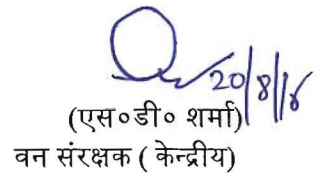 20/8/18
(एस०डी० शर्मा)
वन संरक्षक ( केन्द्रीय)